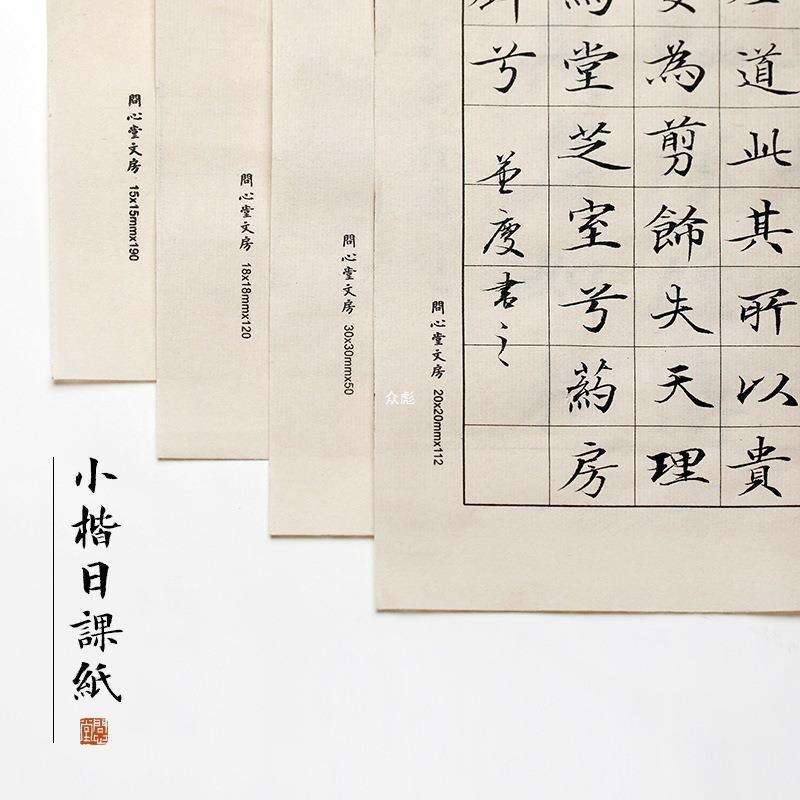 問心堂文房 15x15mmx190
問心堂文房 18x18mmx120
問心堂文房 30x30mmx50
問心堂文房 20x20mmx112
道此其所以貴
為剪飾失天理
堂芝室兮葯房
兮
書之
众彪
小楷日課紙
問心堂